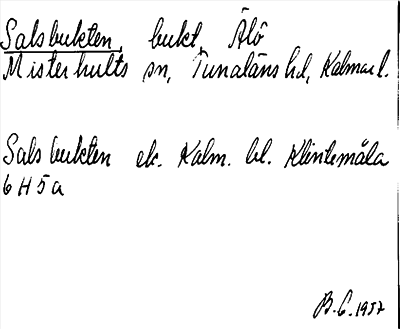 Salsbukten, bukt, Älö
Misterhults sn, Tunaläns hd, Kalmar l.
Salsbukten ek. Kalm. bl. Klintemåla
6 H 5 a
B.G. 1957